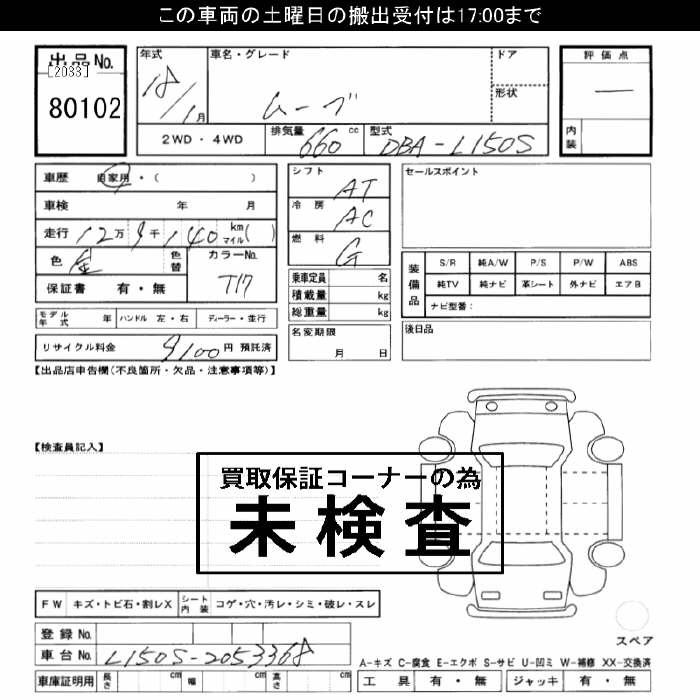 この車両の土曜日の搬出受付は17:00まで
出品No.
[2033]
80102
年式
18/1月
車名・グレード
ムーブ
ドア
形状
評価点
内装
2WD ・ 4WD
排気量 660 cc
型式 DBA-L150S
車歴 自家用・( )
車検 年 月
走行 12万9千140 km マイル ( )
色 金 色替
カラーNo. T17
保証書 有・無
シフト AT
冷房 AC
燃料 G
乗車定員 名
積載量 kg
総重量 kg
セールスポイント
装備品
S/R 純A/W P/S P/W ABS
純TV 純ナビ 革シート 外ナビ エアB
ナビ型番:
モデル年式 年 ハンドル 左・右 ディーラー・並行
名変期限
月 日
後日品
リサイクル料金 9100円 預託済
【出品店申告欄(不良箇所・欠品・注意事項等)】
【検査員記入】
買取保証コーナーの為
未検査
FW キズ・トビ石・割レX シート内装 コゲ・穴・汚レ・シミ・破レ・スレ
スペア
登録No.
車台No. L150S-2053368
A-キズ C-腐食 E-エクボ S-サビ U-凹ミ W-補修 XX-交換済
車庫証明用 長さ cm 幅 cm 高さ cm
工具 有・無 ジャッキ 有・無